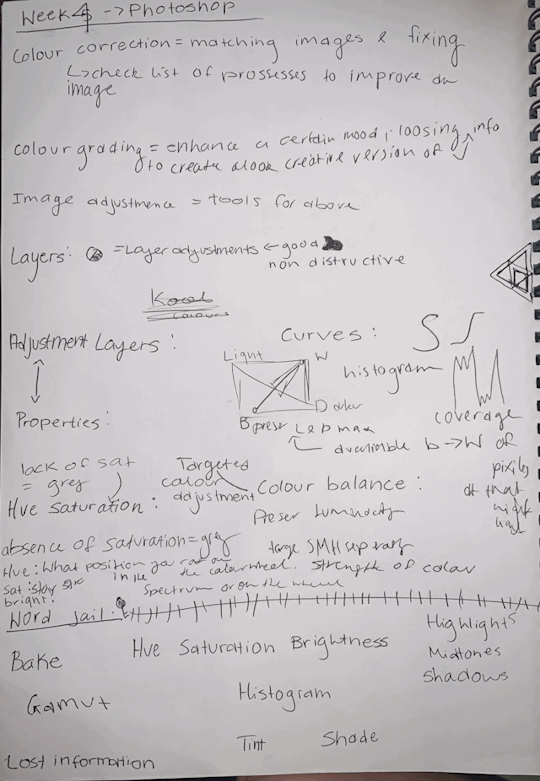 Week 4 -> Photoshop
Colour correction = matching images & fixing
↳ check list of prossesses to improve an
image
colour grading = enhance a certain mood, loosing info
↳ to create a look creative version of
Image adjustmence = tools for above
Layers: = Layer adjustments ← good
non distructive
Kool
colours
Adjustment Layers:
Curves:
Light
W
histogram
coverage
B
D
Properties:
L & D max
b -> W of
pixiles
at that
lack of sat
= grey
Targeted
colour
adjustment
Hue saturation:
Colour balance:
Preser Luminocity
absence of saturation = grey
large SMH seperatly
Hue: What position you
in the
the colourwheel.
Strength of color
Sat:
bright:
Spectrum or on the wheel
Word Jail:
Highlights
Midtones
Shadows
Hue Saturation Brightness
Bake
Gamut
Histogram
Tint
Shade
Lost information